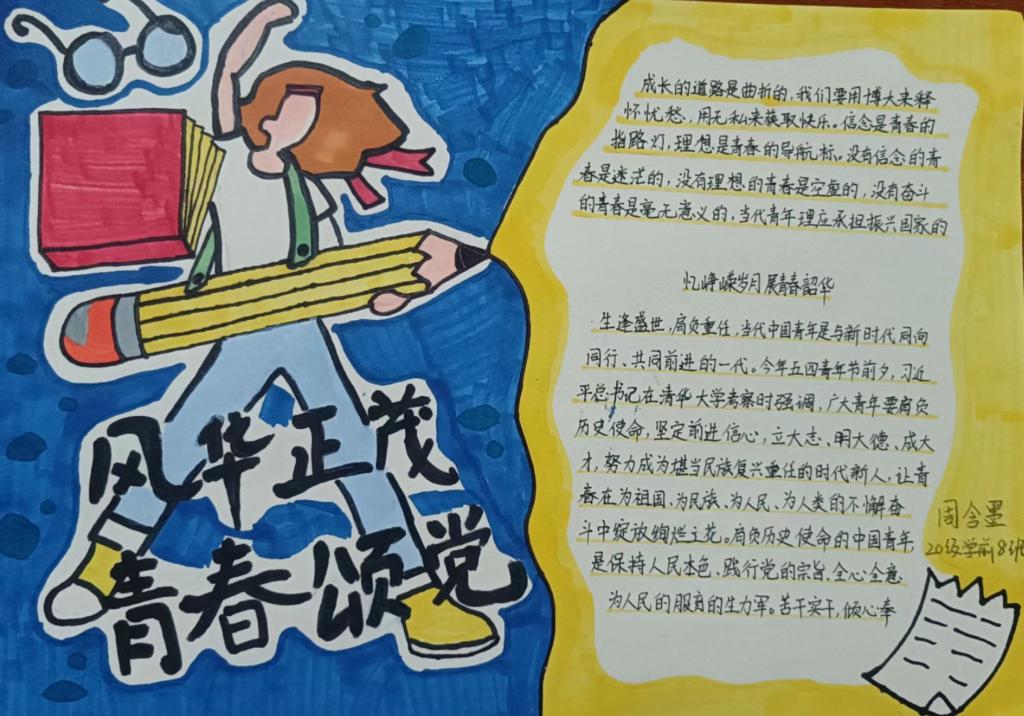 风华正茂
青春颂党
成长的道路是曲折的,我们要用博大来释
怀忧愁,用无私来获取快乐。信念是青春的
指路灯,理想是青春的导航标。没有信念的青
春是迷茫的,没有理想的青春是空虚的,没有奋斗
的青春是毫无意义的,当代青年理应承担振兴国家的
忆峥嵘岁月展青春韶华
生逢盛世,肩负重任,当代中国青年是与新时代同向
同行、共同前进的一代。今年五四青年节前夕,习近
平总书记在清华大学考察时强调,广大青年要肩负
历史使命,坚定前进信心,立大志、明大德、成大
才,努力成为堪当民族复兴重任的时代新人,让青
春在为祖国、为民族、为人民、为人类的不懈奋
斗中绽放绚烂之花。肩负历史使命的中国青年,
是保持人民本色、践行党的宗旨、全心全意
为人民的服务的生力军。苦干实干,倾心奉
周含墨
20级学前8班